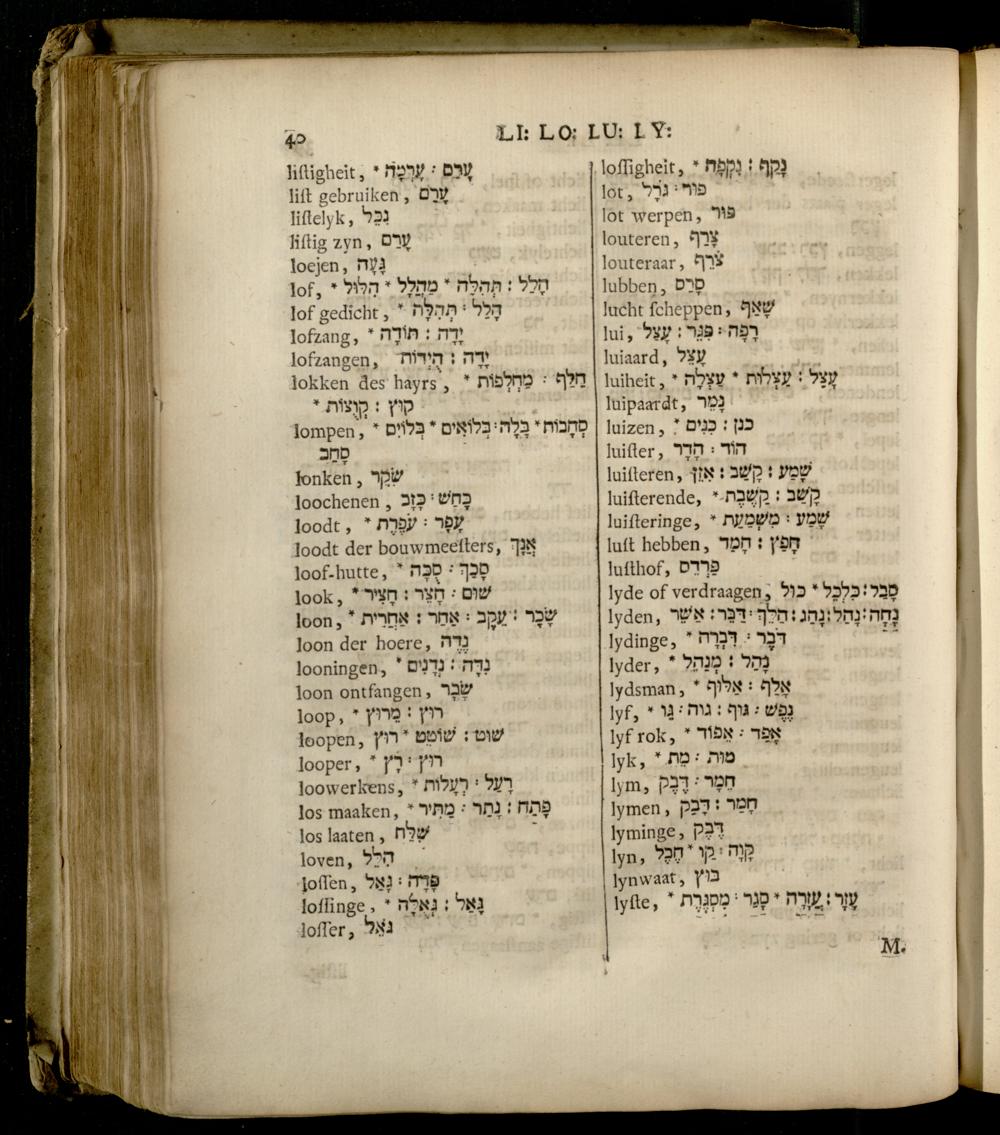 40
LI: LO: LU: LY:
listigheit, * עָרַם : עָרְמָה
list gebruiken, עָרַם
listelyk, נִכֵּל
listig zyn, עָרַם
loejen, גָּעָה
lof, * הָלַל : תְּהִלָּה * מַהֲלָל * הִלּוּל
lof gedicht, * הָלַל : תְּהִלָּה
lofzang, * יָדָה : תּוֹדָה
lofzangen, יָדָה : הֻיְּדוֹת
lokken des hayrs, * חָלַף : מַחְלְפוֹת
* קוּץ : קְוֻצּוֹת
lompen, * סְחָבוֹת * בָּלָה : בְּלוֹאִים * בְּלוֹיִם
סָחַב
lonken, שָׂקַר
loochenen, כָּחַשׁ : כָּזַב
loodt, * עָפָר : עֹפֶרֶת
loodt der bouwmeesters, אֲנָךְ
loof-hutte, * סָכַךְ : סֻכָּה
look, * שׁוּם : חָצֵר : חָצִיר
loon, * שָׂכָר : עֵקֶב : אַחַר : אַחֲרִית
loon der hoere, נֵדֶה
looningen, * נָדָה : נְדָנִים
loon ontfangen, שָׂכַר
loop, * רוּץ : מֵרוֹץ
loopen, שׁוּט : שׁוֹטֵט * רוּץ
looper, * רוּץ : רָץ
loowerkens, * רָעַל : רְעָלוֹת
los maaken, * פָּתַח : נָתַר : מַתִּיר
los laaten, שִׁלַּח
loven, הִלֵּל
lossen, פָּדָה : גָּאַל
lossinge, * גָּאַל : גְּאֻלָּה
losser, גֹּאֵל
lossigheit, * נָקַף : נִקְפָּה
lot, פּוּר : גֹּרָל
lot werpen, פּוּר
louteren, צָרַף
louteraar, צֹרֵף
lubben, סָרַס
lucht scheppen, שָׁאַף
lui, רָפָה : פִּגֵּר : עָצַל
luiaard, עָצֵל
luiheit, * עָצַל : עַצְלוּת * עַצְלָה
luipaardt, נָמֵר
luizen, * כנן : כִּנִּים
luister, הוֹד : הָדָר
luisteren, שָׁמַע : קָשַׁב : אָזַן
luisterende, * קָשַׁב : קַשֶּׁבֶת
luisteringe, * שָׁמַע : מִשְׁמַעַת
lust hebben, חָפֵץ : חָמַד
lusthof, פַּרְדֵּס
lyde of verdraagen, סָבַל : כִּלְכֵּל * כּוּל
lyden, נָחָה : נָהַל : נָהַג : הָלַךְ : דַּבֵּר : אַשֵּׁר
lydinge, * דָּבַר : דִּבְרָה
lyder, * נָהַל : מְנַהֵל
lydsman, * אָלַף : אַלּוּף
lyf, * נֶפֶשׁ : גּוּף : גוה : גֵּו
lyf rok, * אָפַד : אֵפוֹד
lyk, * מוּת : מֵת
lym, חֵמָר : דֶּבֶק
lymen, חָמַר : דָּבַק
lyminge, דֶּבֶק
lyn, קָוָה : קַו * חֶבֶל
lynwaat, בּוּץ
lyste, * עָזַר : עֲזָרָה * סָגַר : מִסְגֶּרֶת
M.